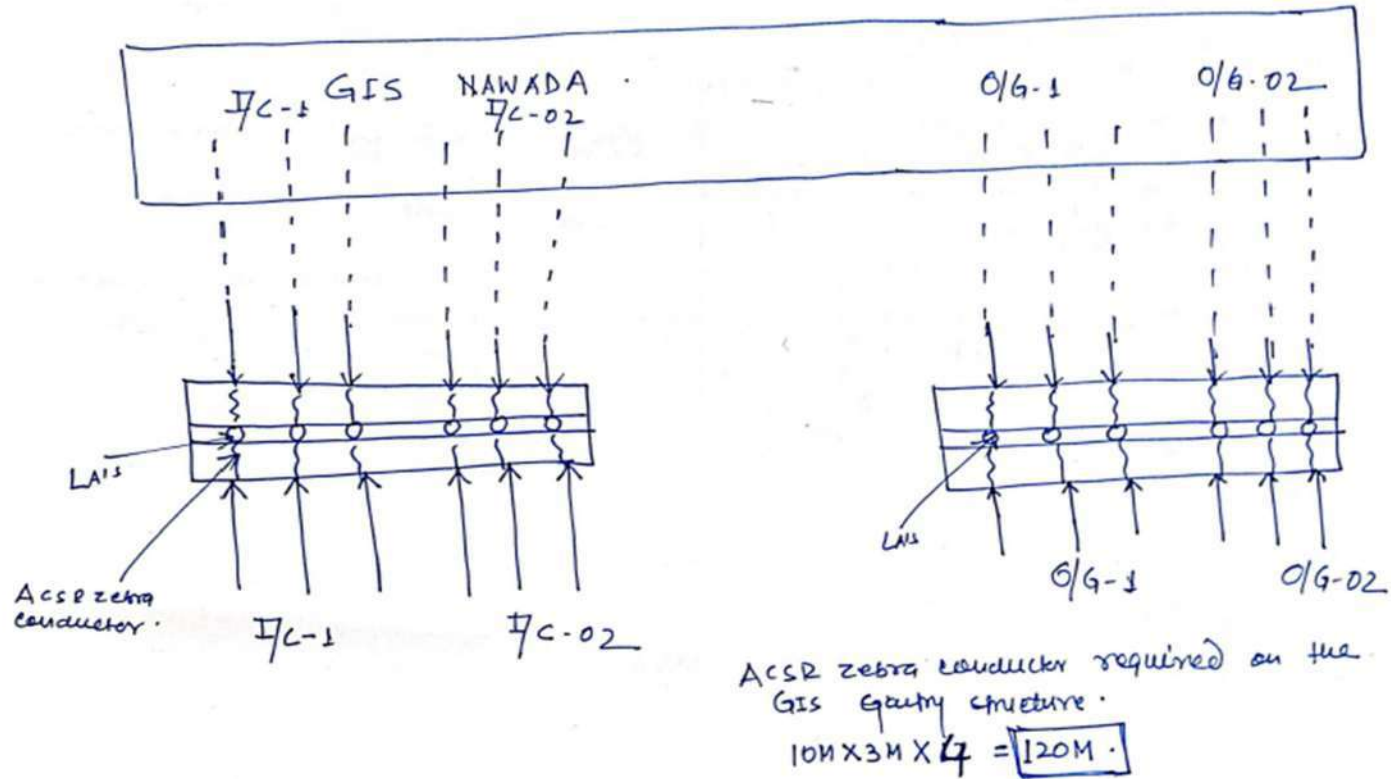 I/C-1 GIS NAWADA I/C-02 O/G-1 O/G-02
LA'S
LA'S
ACSR zebra
conductor.
I/C-1 I/C-02 O/G-1 O/G-02
ACSR zebra conductor required on the
GIS structure.
10M X 3M X 4 = 120M.